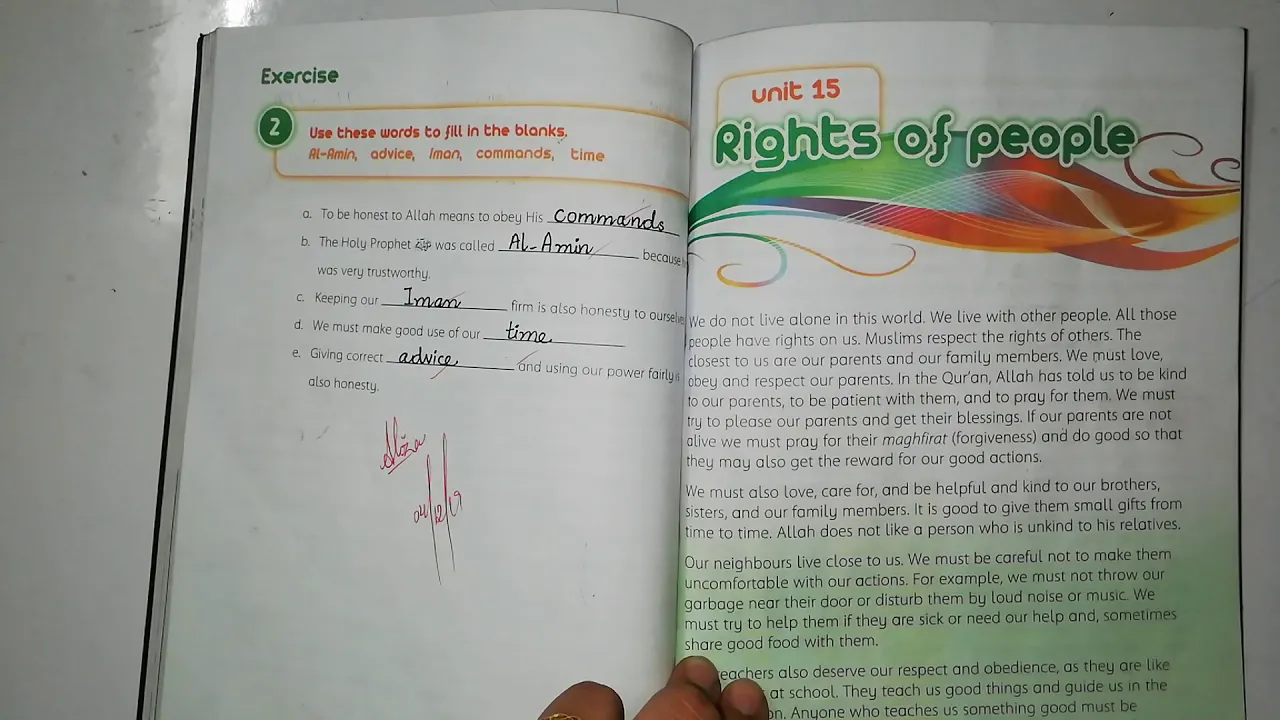 Exercise
2
Use these words to fill in the blanks.
Al-Amin, advice, Iman, commands, time
a. To be honest to Allah means to obey His commands
b. The Holy Prophet ﷺ was called Al-Amin because
was very trustworthy.
c. Keeping our Iman firm is also honesty to
d. We must make good use of our time
e. Giving correct advice and using our power fairly is
also honesty.
unit 15
Rights of people
We do not live alone in this world. We live with other people. All those
people have rights on us. Muslims respect the rights of others. The
closest to us are our parents and our family members. We must love,
obey and respect our parents. In the Qur'an, Allah has told us to be kind
to our parents, to be patient with them, and to pray for them. We must
try to please our parents and get their blessings. If our parents are not
alive we must pray for their maghfirat (forgiveness) and do good so that
they may also get the reward for our good actions.
We must also love, care for, and be helpful and kind to our brothers,
sisters, and our family members. It is good to give them small gifts from
time to time. Allah does not like a person who is unkind to his relatives.
Our neighbours live close to us. We must be careful not to make them
uncomfortable with our actions. For example, we must not throw our
garbage near their door or disturb them by loud noise or music. We
must try to help them if they are sick or need our help and, sometimes
share good food with them.
teachers also deserve our respect and obedience, as they are like
at school. They teach us good things and guide us in the
Anyone who teaches us something good must be